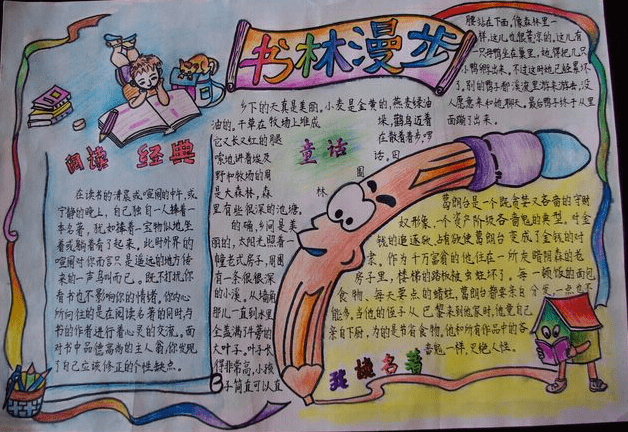 书林漫步
阅读 经典
在读书的清晨或喧闹的中午，或
宁静的晚上，自己独自一人捧着一
本名著，犹如捧着一宝物似地坐
着或躺着看了起来，此时外界的
喧闹对你而言只是遥远的地方传
来的一声鸟叫而已。既不打扰你
看书也不影响你的情绪，你内心
所向往的是在阅读名著的同时与
书的作者进行着心灵的交流。面
对书中品德高尚的主人翁，你发现
了自己应该修正的个性缺点。
童话
乡下的天真是美丽。小麦是金黄的，燕麦绿油
油的。干草在牧场上堆成
垛，鹳鸟迈着
它又长又红的腿
在散着步，啰
嗦地讲着埃及
话。田
野和牧场的周
围
是大森林，森
林
里有些很深的池塘。
的确，乡间是美
丽的，太阳光照着一
幢老式房子，周围
有一条很深
的小溪。从墙角
那儿一直到水里
全盖满牛蒡的
大叶子。叶子长
得非常高，小孩
子简直可以直
腰站在下面。像森林里一
样，这儿也很荒凉的。这儿有
一只母鸭坐在巢里，她得把几只
小鸭孵出来。不过这时她已经累坏
了。别的鸭子都溪流里游来游去，没
人愿意来和她聊天。最后鸭子终于从里
面蹦了出来。
葛朗台是一个既贪婪又吝啬的守财
奴形象，一个资产阶级吝啬鬼的典型。对金
钱的追逐欲、占有欲使葛朗台变成了金钱的对
家，作为千万富翁的他，住在一所灰暗阴森的老
房子里，楼梯的踏板被虫蛀坏了。每一顿饭的面包，
食物，每天要点的蜡烛，葛朗台都要亲自分发一点也不
能多，当他的侄子从巴黎来到他家时，他竟自己
亲自下厨，为的是节省食物，他和所有作品中的吝
啬鬼一样，灭绝人性。
我读名著